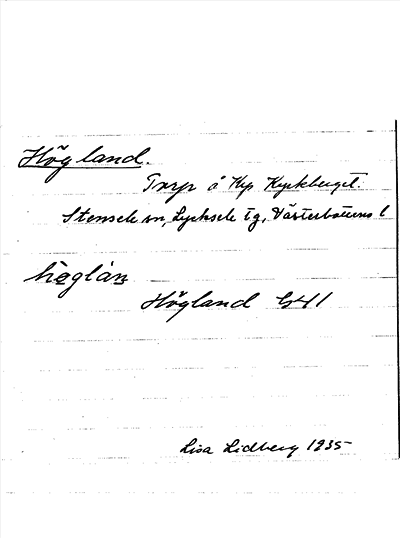 Högland.
Torp å Krp Kyrkberget.
Stensele sn, Lycksele tg, Västerbottens l
hø̀glán
Högland G41
Lisa Lidberg 1935